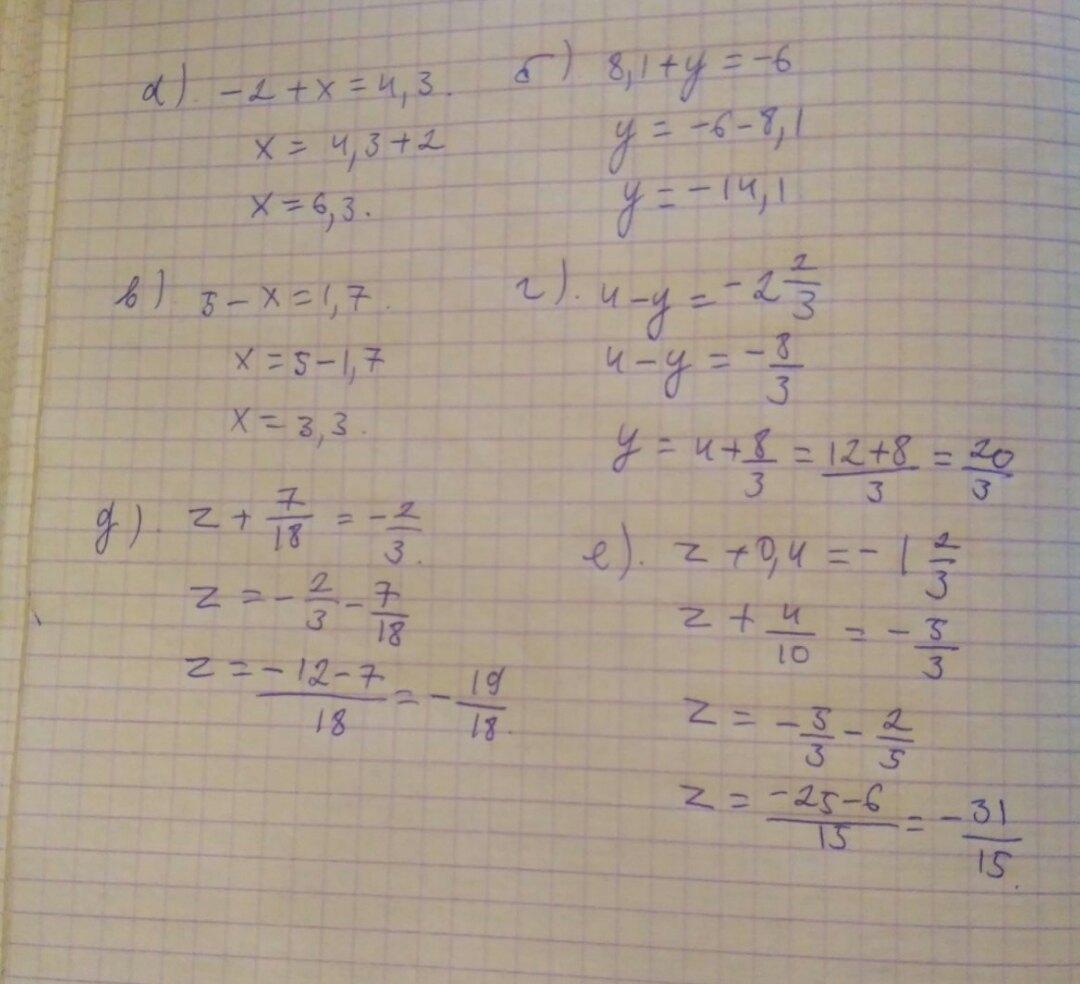 а). -2 + x = 4,3.
x = 4,3 + 2
x = 6,3.
б) 8,1 + y = -6
y = -6 - 8,1
y = -14,1
в) 5 - x = 1,7.
x = 5 - 1,7
x = 3,3.
г). 4 - y = -2 2/3
4 - y = -8/3
y = 4 + 8/3 = (12+8)/3 = 20/3
д). z + 7/18 = -2/3.
z = -2/3 - 7/18
z = (-12-7)/18 = -19/18.
е). z + 0,4 = -1 2/3
z + 4/10 = -5/3
z = -5/3 - 2/5
z = (-25-6)/15 = -31/15.